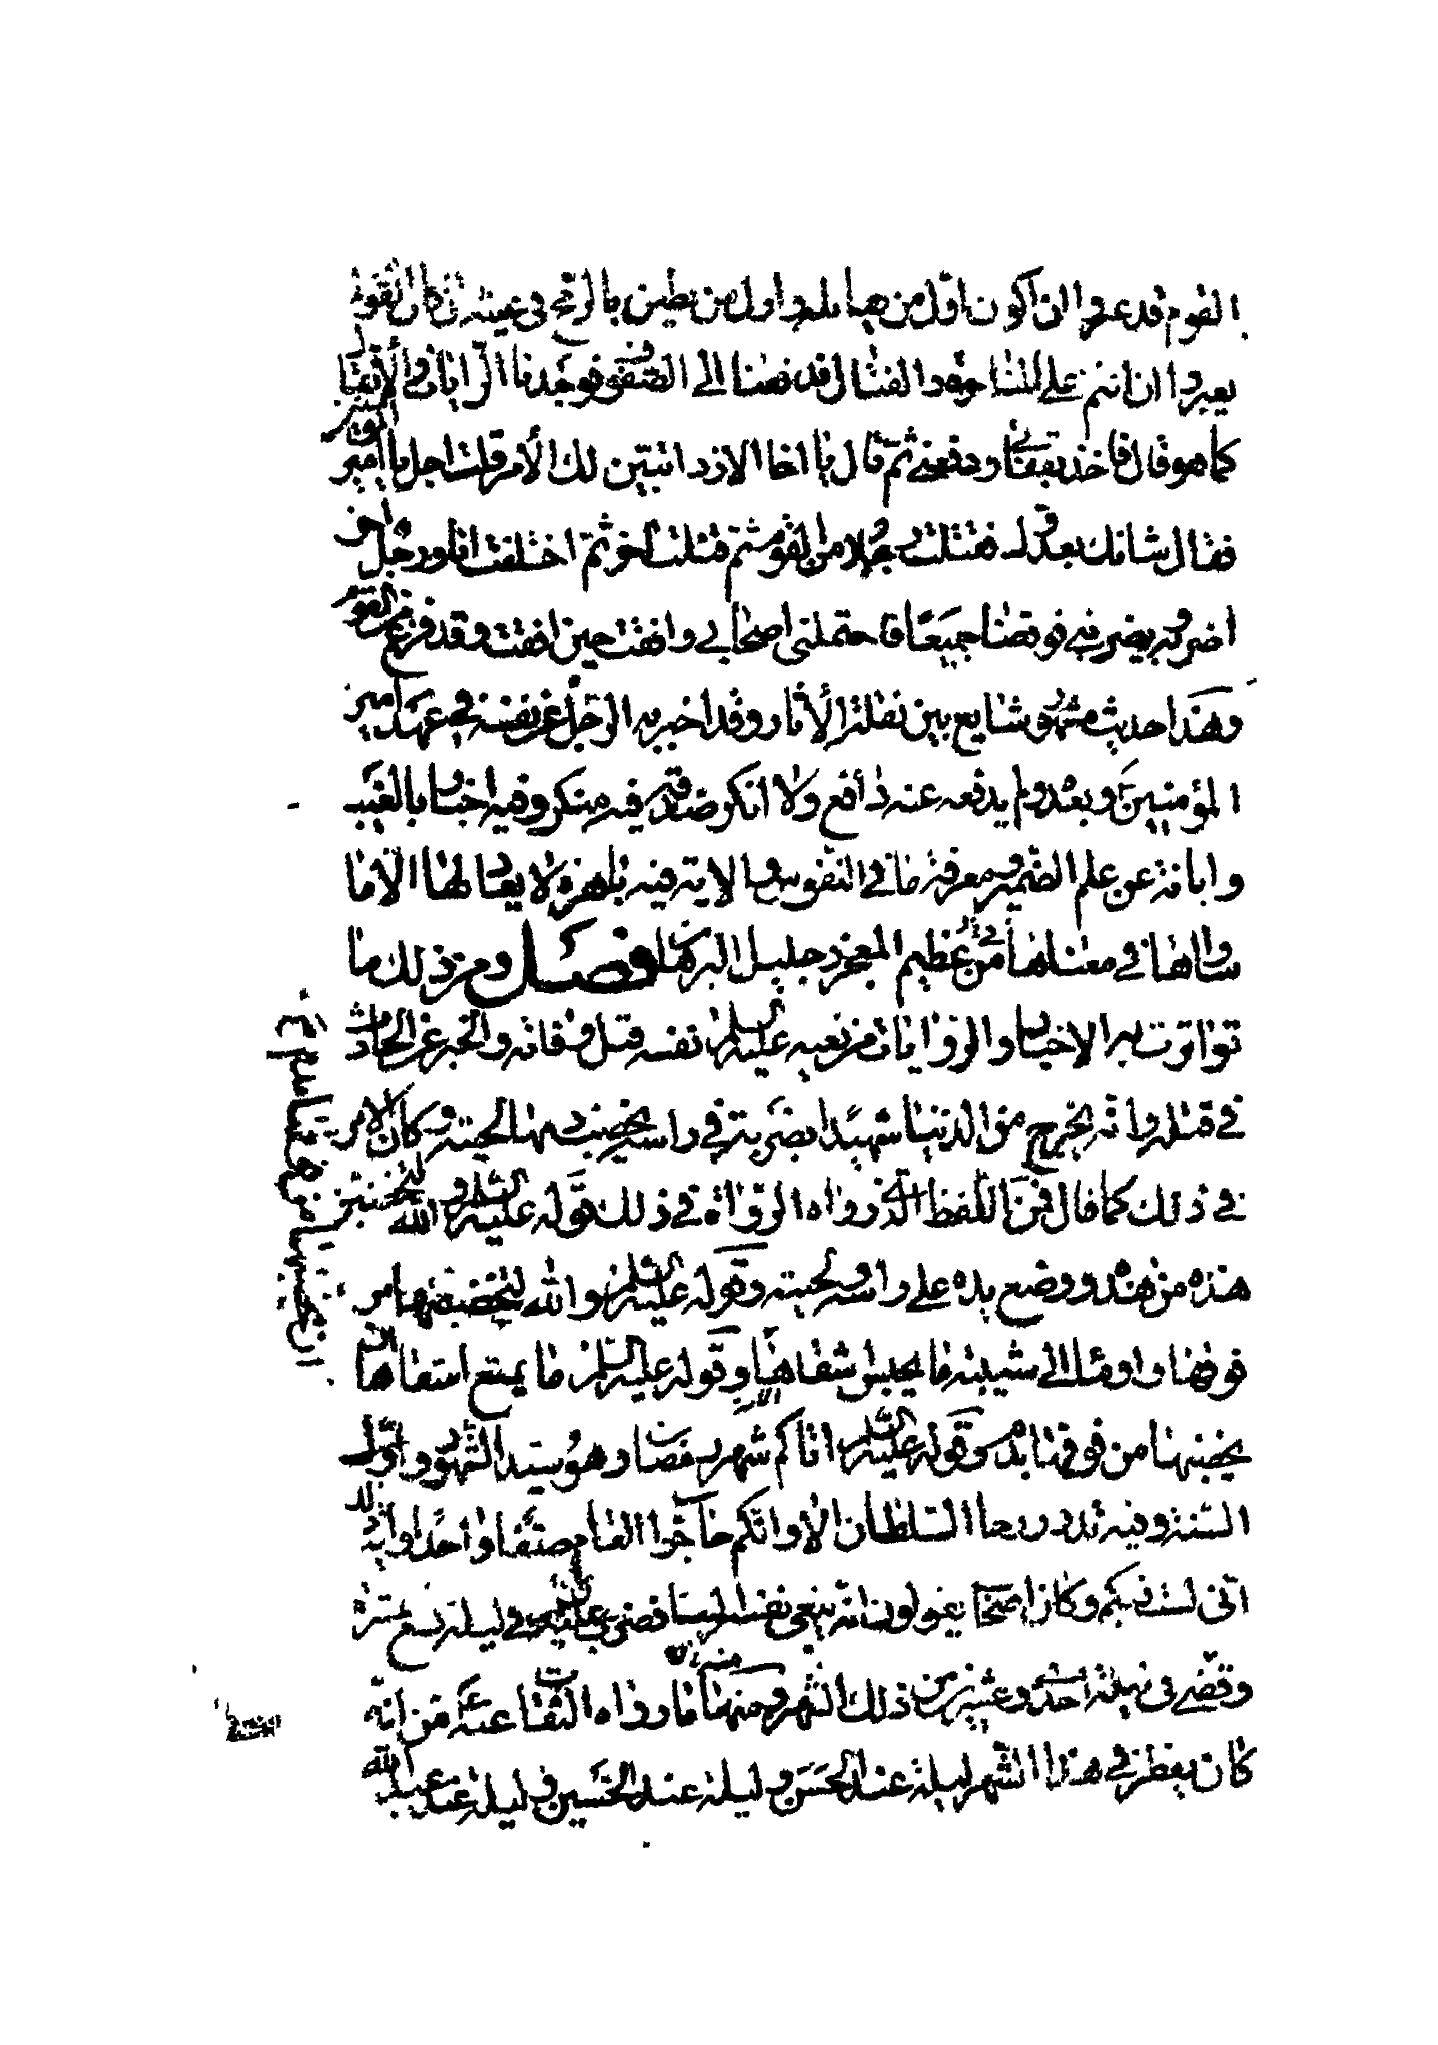 القوم قد عبروا ان اكون اول من يقاتله واول من يطعن بالرمح في عينه وان كان القوم لم
يعبروا ان اتم على المناجزة والقتال فدفعنا الى الصفوف فوجدنا الرايات والاثقال
كما هو قال فاخذ بقفاي ودفعني ثم قال يا اخا الازد اتبين لك الامر قلت اجل يا امير المؤمنين
فقال شانك بعدوك فقتلت رجلا من القوم ثم قتلت اخر ثم اختلفت انا ورجل اخر
اضربه ويضربني فوقعنا جميعا فاحتملني اصحابي وافقت حين افقت وقد فرغ من القوم
وهذا حديث مشهور شايع بين نقلة الاثار وقد اخبر به الرجل عن نفسه في عهد امير
المؤمنين وبعده ولم يدفعه عنه دافع ولا انكر صدقه فيه منكر وفيه اخبار بالغيب
وابانة عن علم الضمير ومعرفة ما في النفوس والاية فيه باهرة لا يعادلها الا ما
ساواها في معناها من عظيم المعجز وجليل البرهان فصل ومن ذلك ما
تواترت به الاخبار والروايات من نعيه عليه السلام نفسه قبل وفاته والخبر عن الحادث
في قتله وانه يخرج من الدنيا شهيدا بضربة في راسه يخضب دمها لحيته وكان الامر
في ذلك كما قال فمن اللفظ الذي رواه الرواة في ذلك قوله عليه السلام والله لتخضبن
هذه من هذه ووضع يده على راسه ولحيته وقوله عليه السلام والله ليخضبنها من
فوقها واوما الى شيبته ما يحبس اشقاها وقوله عليه السلام ما يمنع اشقاها ان
يخضبها من فوقها بدم وقوله عليه السلام اتاكم شهر رمضان وهو سيد الشهور واول
السنة وفيه تدور رحا السلطان الا وانكم حاجوا العام صفا واحدا واية ذلك
انى لست فيكم وكان اصحابه يقولون انه ينعى نفسه الينا فضرب عليه السلام في ليلة تسع عشرة
وقضى في ليلة احدى وعشرين من ذلك الشهر ومنها ما رواه الثقات عنه من انه
كان يفطر في هذا الشهر ليلة عند الحسن وليلة عند الحسين وليلة عند عبد الله